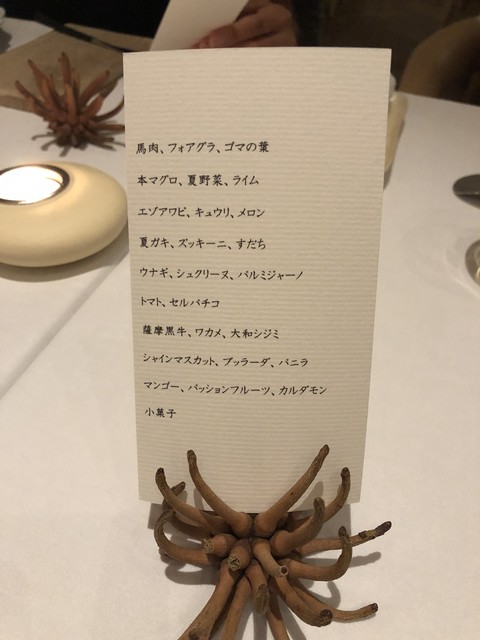 馬肉、フォアグラ、ゴマの葉
本マグロ、夏野菜、ライム
エゾアワビ、キュウリ、メロン
夏ガキ、ズッキーニ、すだち
ウナギ、シュクリーヌ、パルミジャーノ
トマト、セルバチコ
薩摩黒牛、ワカメ、大和シジミ
シャインマスカット、ブッラータ、バニラ
マンゴー、パッションフルーツ、カルダモン
小菓子